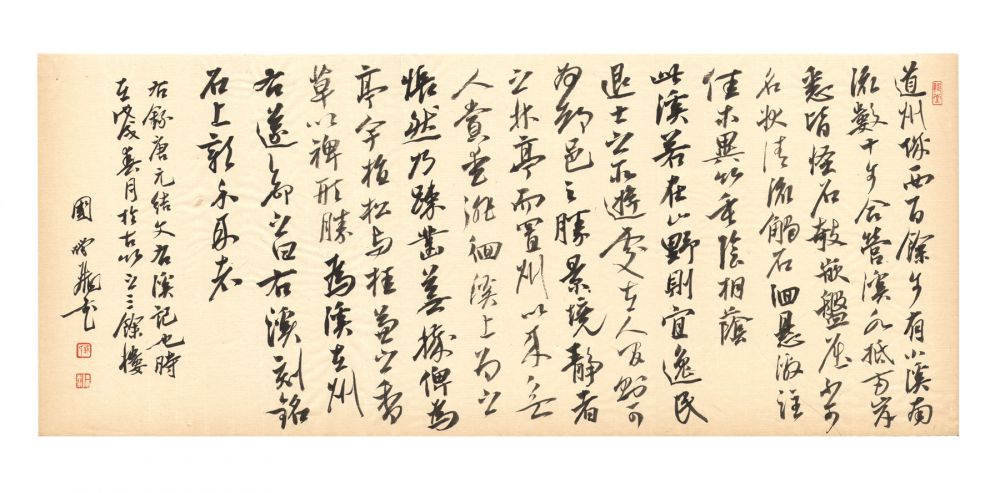 道州城西百餘步有小溪南
流數十步合營溪水抵兩岸
悉皆怪石敧嵌盤屈不可
名狀清流觸石洄懸激注
佳木異竹垂陰相蔭
此溪若在山野則宜逸民
退士之所遊處在人間則可
為都邑之勝景境靜者
之林亭而置州以來無
人賞愛徘徊溪上為之
悵然乃疏鑿蕪穢俾為
亭宇植松與桂兼之香
草以裨形勝為溪在州
右遂命之曰右溪刻銘
石上彰示來者
右錄唐元結文右溪記也時
在戊戌春月於古吳之三餘樓
國